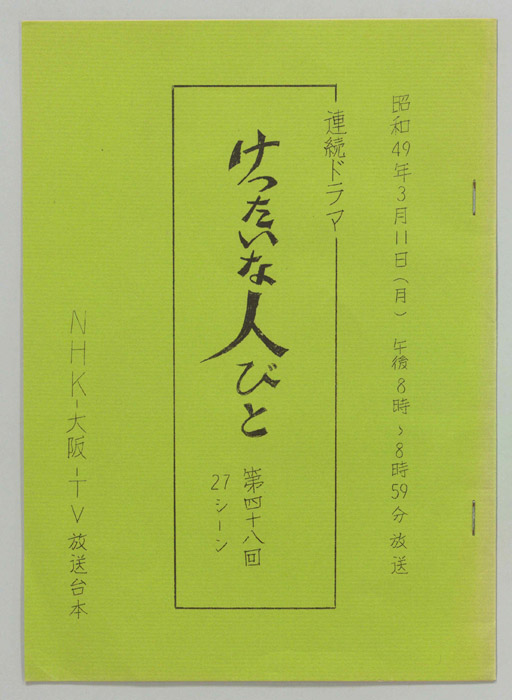 昭和49年3月11日(月) 午後8時〜8時59分放送
連続ドラマ
けったいな人びと
第四十八回
27シーン
NHK-大阪-TV放送台本